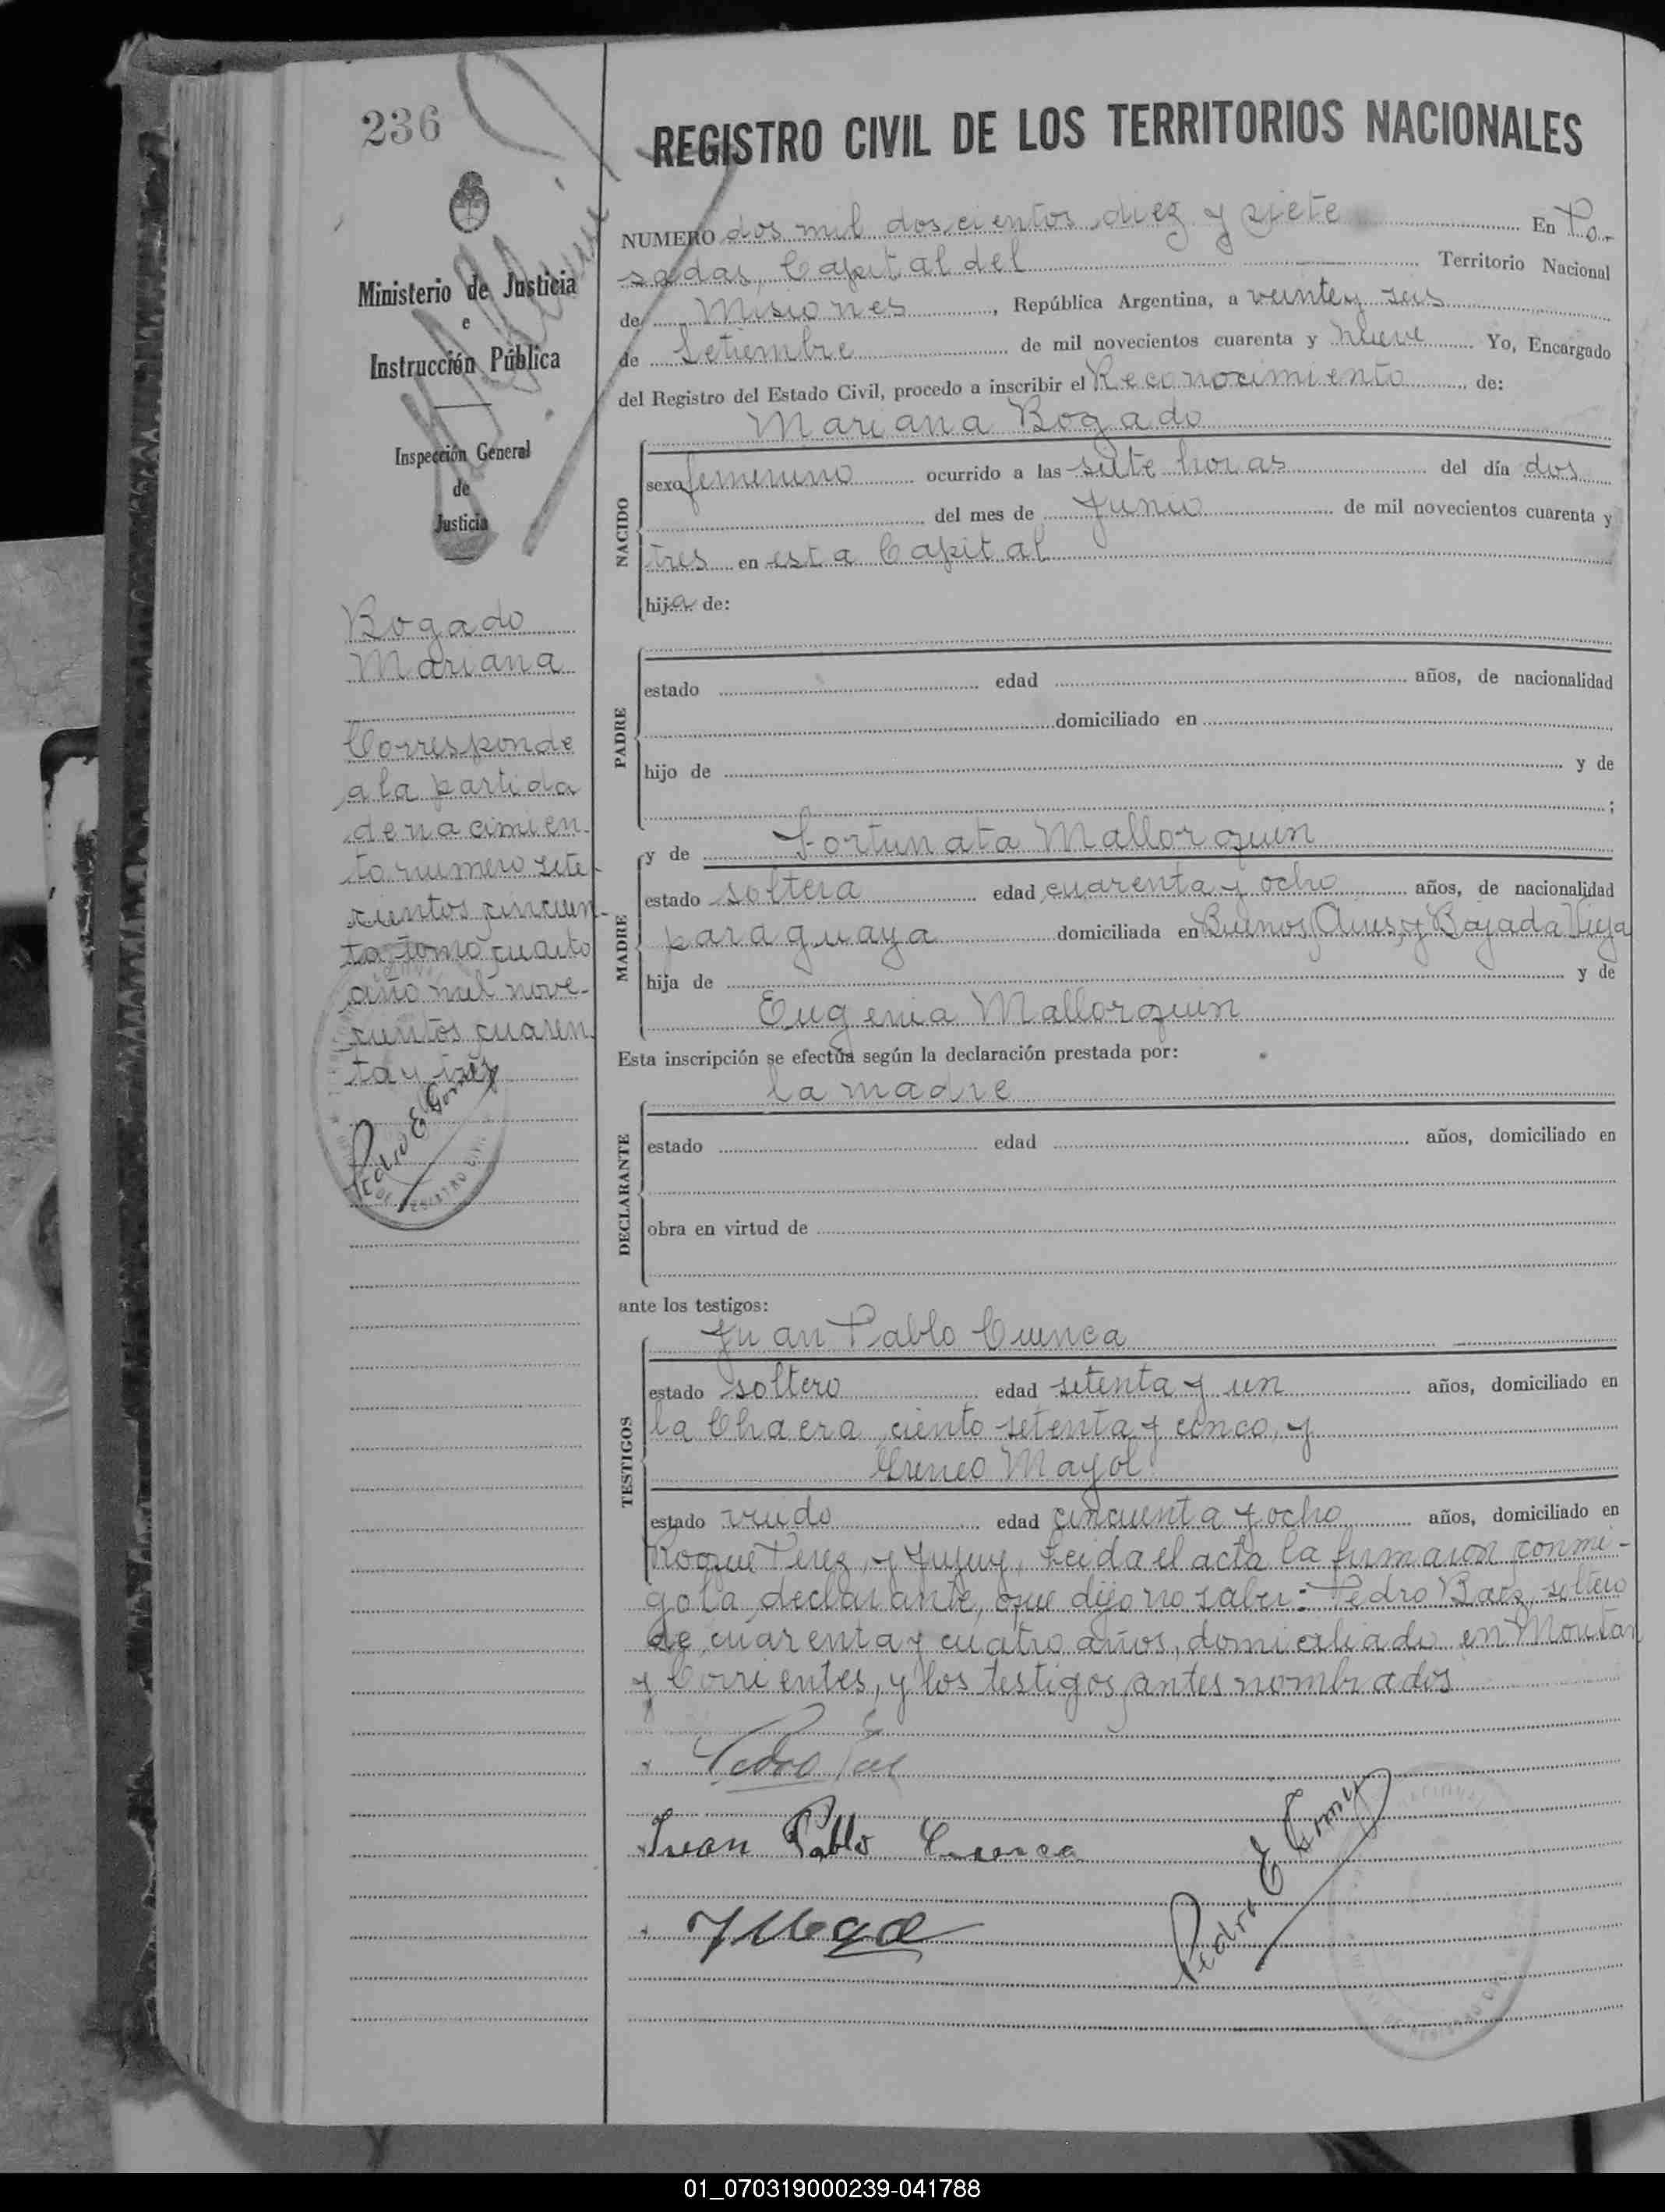 236
Ministerio de Justicia
e
Instrucción Pública
Inspección General
de
Justicia
Bogado
Mariana
Corresponde
a la partida
de nacimien-
to numero sete-
cientos cincuen-
ta tomo cuarto
año mil nove-
cientos cuaren
ta y tres
Pedro E Gomez
REGISTRO CIVIL DE LOS TERRITORIOS NACIONALES
NUMERO dos mil doscientos diez y siete En Po-
sadas, Capital del Territorio Nacional
de Misiones, República Argentina, a veinte y seis
de Setiembre de mil novecientos cuarenta y nueve Yo, Encargado
del Registro del Estado Civil, procedo a inscribir el Reconocimiento de:
Mariana Bogado
NACIDO
sexo femenino ocurrido a las siete horas del día dos
del mes de Junio de mil novecientos cuarenta y
tres en esta Capital
hija de:
PADRE
estado edad años, de nacionalidad
domiciliado en
hijo de y de
;
MADRE
y de Fortunata Mallorquin
estado soltera edad cuarenta y ocho años, de nacionalidad
paraguaya domiciliada en Buenos Aires y Bajada Vieja
hija de y de
Eugenia Mallorquin
Esta inscripción se efectúa según la declaración prestada por:
la madre
DECLARANTE
estado edad años, domiciliado en
obra en virtud de
ante los testigos:
TESTIGOS
Juan Pablo Cuenca
estado soltero edad setenta y un años, domiciliado en
la Chacra ciento setenta y cinco, y
Ireneo Mayol
estado viudo edad cincuenta y ocho años, domiciliado en
Roque Perez y Jujuy, Leida el acta la firmaron conmi-
go la declarante, que dijo no saber: Pedro Baez, soltero
de cuarenta y cuatro años, domiciliado en Moutan
y Corrientes, y los testigos antes nombrados
Juan Pablo Cuenca
Pedro E Gomez
01_070319000239-041788